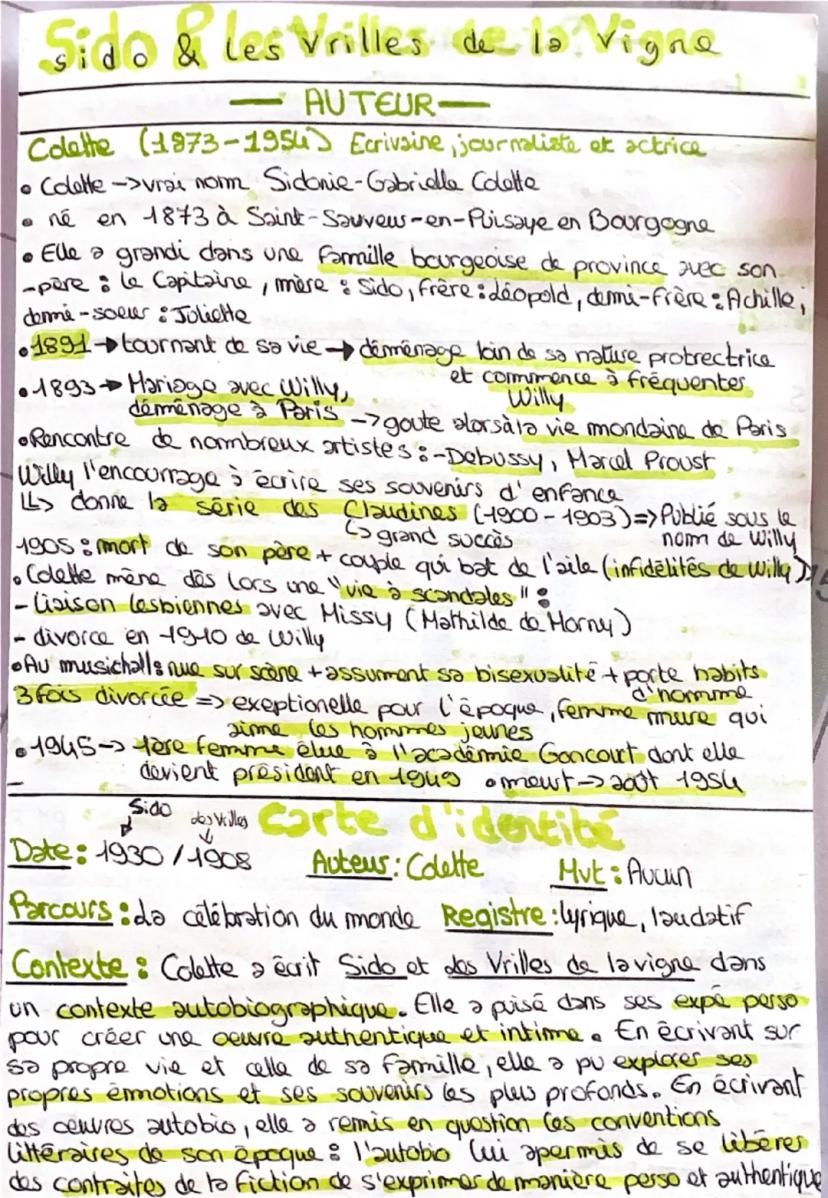 Sido & les Vrilles de la Vigne
— AUTEUR —
Colette (1873-1954) Ecrivaine, journaliste et actrice
• Colette -> vrai nom Sidonie-Gabrielle Colette
• né en 1873 à Saint-Sauveur-en-Puisaye en Bourgogne
• Elle a grandi dans une famille bourgeoise de province avec son
-père : le Capitaine, mère : Sido, frère : Léopold, demi-frère : Achille,
demi-soeur : Joliette
• 1891 -> tournant de sa vie -> déménage loin de sa nature protrectrice
et commence à fréquentes
Willy
• 1893 -> Mariage avec Willy,
déménage à Paris -> goute alors à la vie mondaine de Paris
• Rencontre de nombreux artistes : -Debussy, Marcel Proust
Willy l'encourrage à écrire ses souvenirs d'enfance
↳> donne la série des Claudines (1900-1903) => Publié sous le
nom de Willy
↳ grand succès
1905 : mort de son père + couple qui bat de l'aile (infidélités de Willy)
• Colette mène dès lors une "vie à scandales" :
- Liaison lesbiennes avec Missy (Mathilde de Morny)
- divorce en 1910 de Willy
• Au musichall : nue sur scène + assument sa bisexualité + porte habits
d'homme
3 fois divorcée => exeptionelle pour l'époque, femme mure qui
aime les hommes jeunes
• 1945 -> 1ère femme élue à l'académie Goncourt dont elle
devient président en 1949 • meurt -> août 1954
Carte d'identité
Sido les Vrilles
Date : 1930 / 1908 Auteur : Colette Mvt : Aucun
Parcours : La célébration du monde Registre : lyrique, laudatif
Contexte : Colette a écrit Sido et les Vrilles de la vigne dans
un contexte autobiographique. Elle a puisé dans ses expé perso
pour créer une oeuvre authentique et intime. En écrivant sur
sa propre vie et celle de sa famille, elle a pu explorer ses
propres émmotions et ses souvenirs les plus profonds. En écrivant
des oeuvres autobio, elle a remis en question les conventions
littéraires de son époque : l'autobio lui a permis de se libérer
des contraites de la fiction de s'exprimer de manière perso et authentique